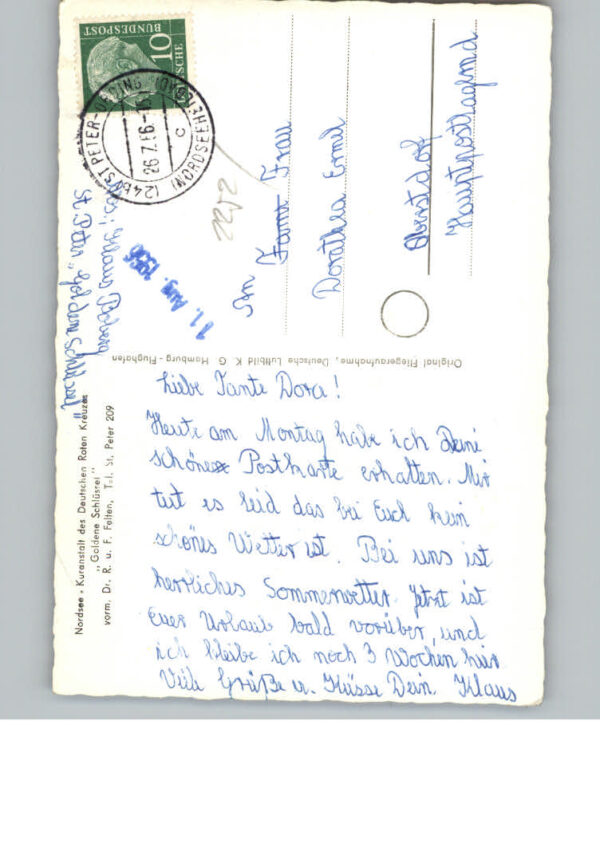 10
DEUTSCHE
BUNDESPOST
(24b) ST PETER-
(NORDSEEHEILBAD)
26.7.56
c
2252
11. Aug. 1956
An
Frau
Dorothea
Oberstdorf
Hauptpostlagernd
Abs. Klaus
St. Peter "Goldene Schlüssel"
Original Fliegeraufnahme, Deutsche Luftbild K G Hamburg - Flughafen
Nordsee - Kuranstalt des Deutschen Roten Kreuzes
"Goldene Schlüssel"
vorm. Dr. R. u. F. Felten, Tel. St. Peter 209
Liebe Tante Dora!
Heute am Montag habe ich Deine
schöne Postkarte erhalten. Mir
tut es leid das bei Euch kein
schönes Wetter ist. Bei uns ist
herrliches Sommerwetter. Jetzt ist
Euer Urlaub bald vorüber, und
ich bleibe ich noch 3 Wochen hier
Viele Grüße u. Küsse Dein Klaus